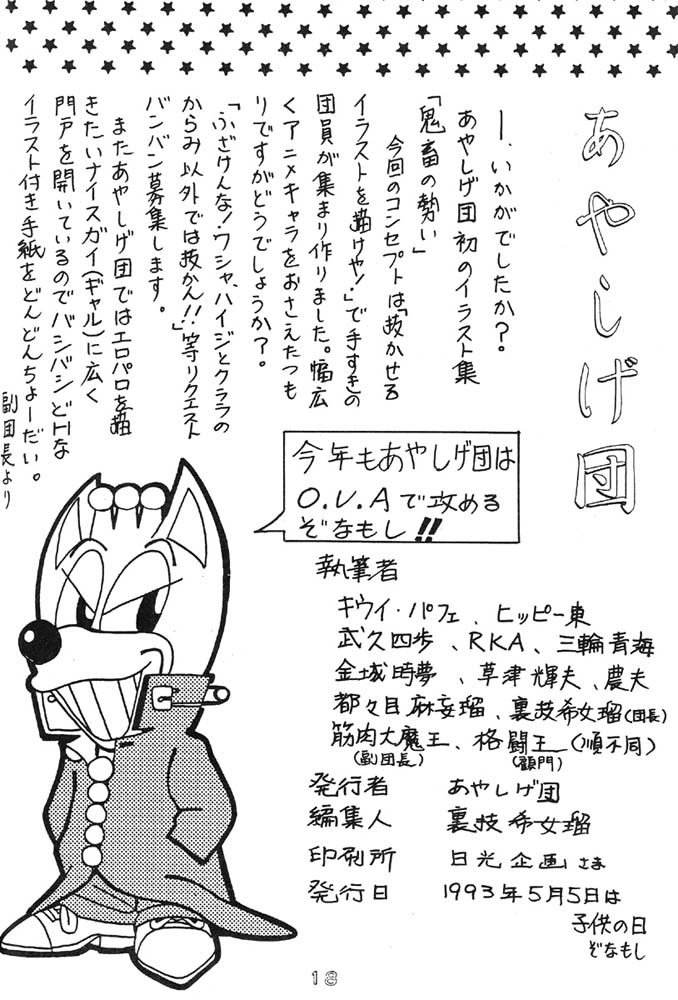 あやしげ団
―、いかがでしたか？
あやしげ団初のイラスト集
「鬼畜の勢い」
今回のコンセプトは「抜かせる
イラストを描けや！」で手すきの
団員が集まり作りました。幅広
くアニメキャラをおさえたつも
りですがどうでしょうか？。
「ふざけんな！ワシャ、ハイジとクララの
からみ以外では抜かん!!」等リクエスト
バンバン募集します。
またあやしげ団ではエロパロを描
きたいナイスガイ（ギャル）に広く
門戸を開いているのでバシバシどHな
イラスト付き手紙をどんどんちょーだい。
副団長より
今年もあやしげ団は
O.V.Aで攻める
ぞなもし!!
執筆者
キウイ・パフェ、ヒッピー東
武久四歩、RKA、三輪青海
金城時夢、草津輝夫、農夫
都々目麻妄瑠、裏技希女瑠(団長)
筋肉大魔王、格闘王（順不同）
(副団長) (顧門)
発行者 あやしげ団
編集人 裏技希女瑠
印刷所 日光企画さま
発行日 1993年5月5日は
子供の日
ぞなもし
18